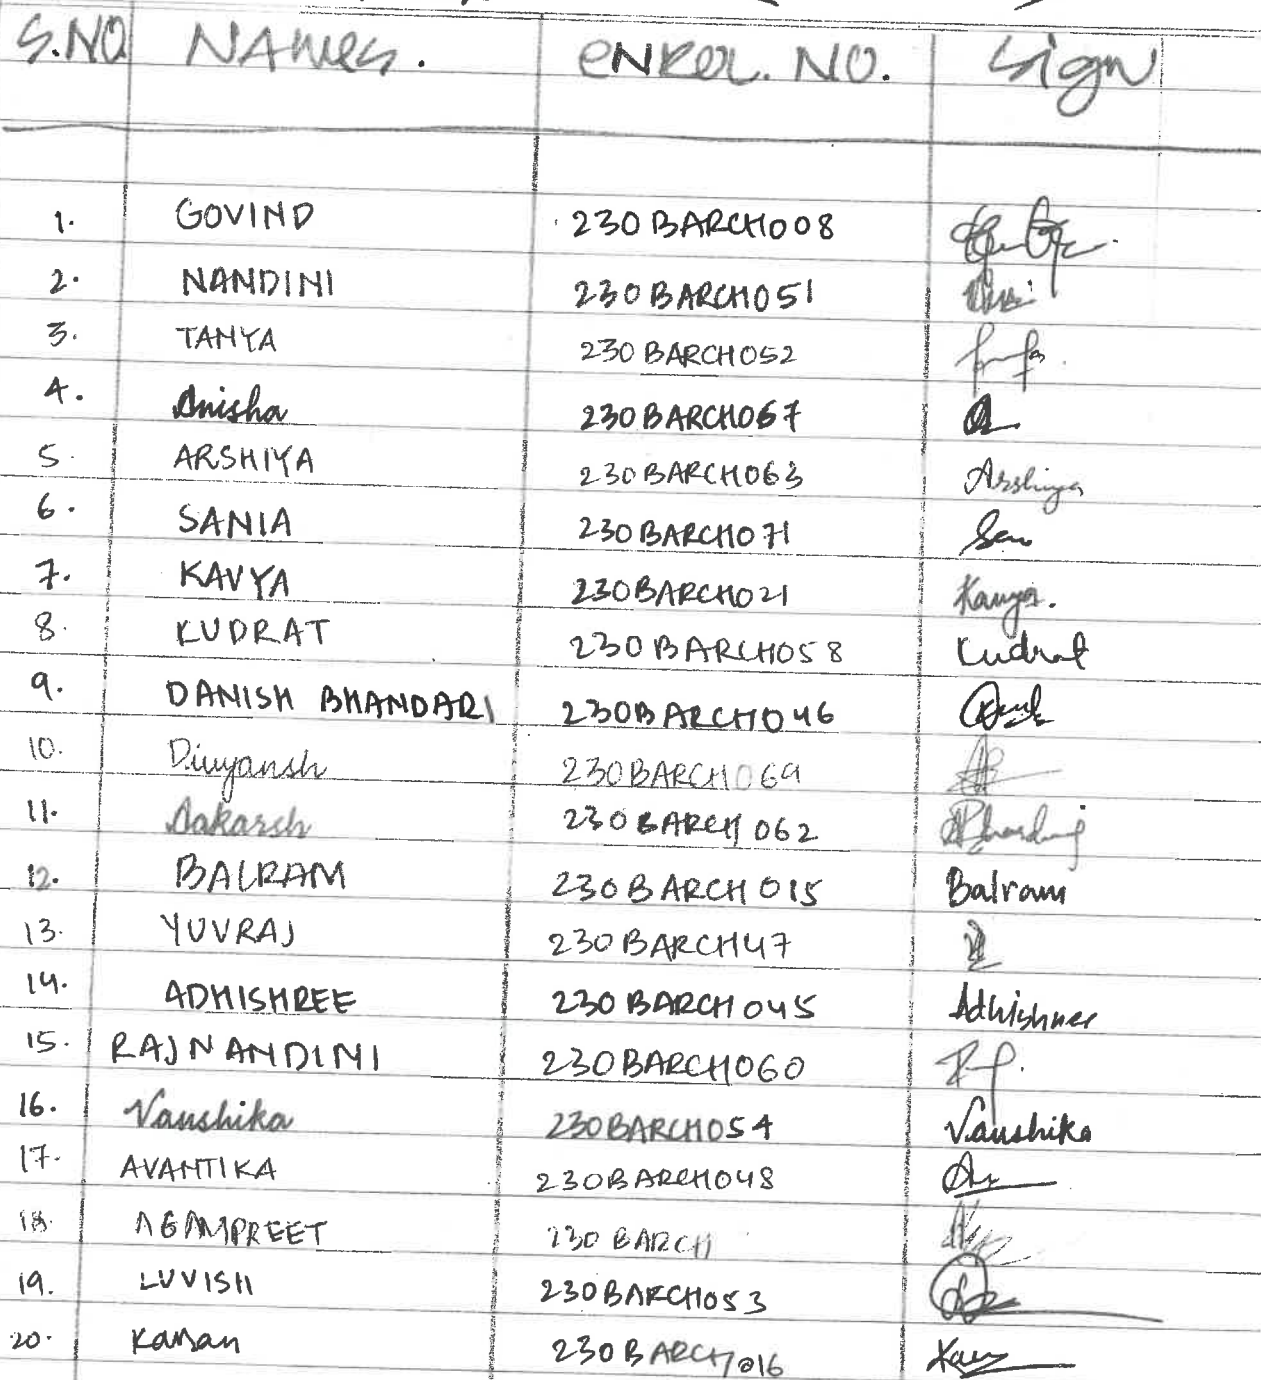 S.NO NAMES. ENROL. NO. Sign
1. GOVIND 230BARCH008
2. NANDINI 230BARCH051
3. TANYA 230BARCH052
4. Anisha 230BARCH067
5. ARSHIYA 230BARCH063 Arshiya
6. SANIA 230BARCH071
7. KAVYA 230BARCH021 Kavya.
8. KUDRAT 230BARCH058 Kudrat
9. DANISH BHANDARI 230BARCH046
10. Divyansh 230BARCH069
11. Aakarsh 230BARCH062
12. BALRAM 230BARCH015 Balram
13. YUVRAJ 230BARCH47
14. ADHISHREE 230BARCH045 Adhishree
15. RAJNANDINI 230BARCH060
16. Vanshika 230BARCH054 Vanshika
17. AVANTIKA 230BARCH048
18. AGAMPREET 230BARCH
19. LUVISH 230BARCH053
20. Kanan 230BARCH016